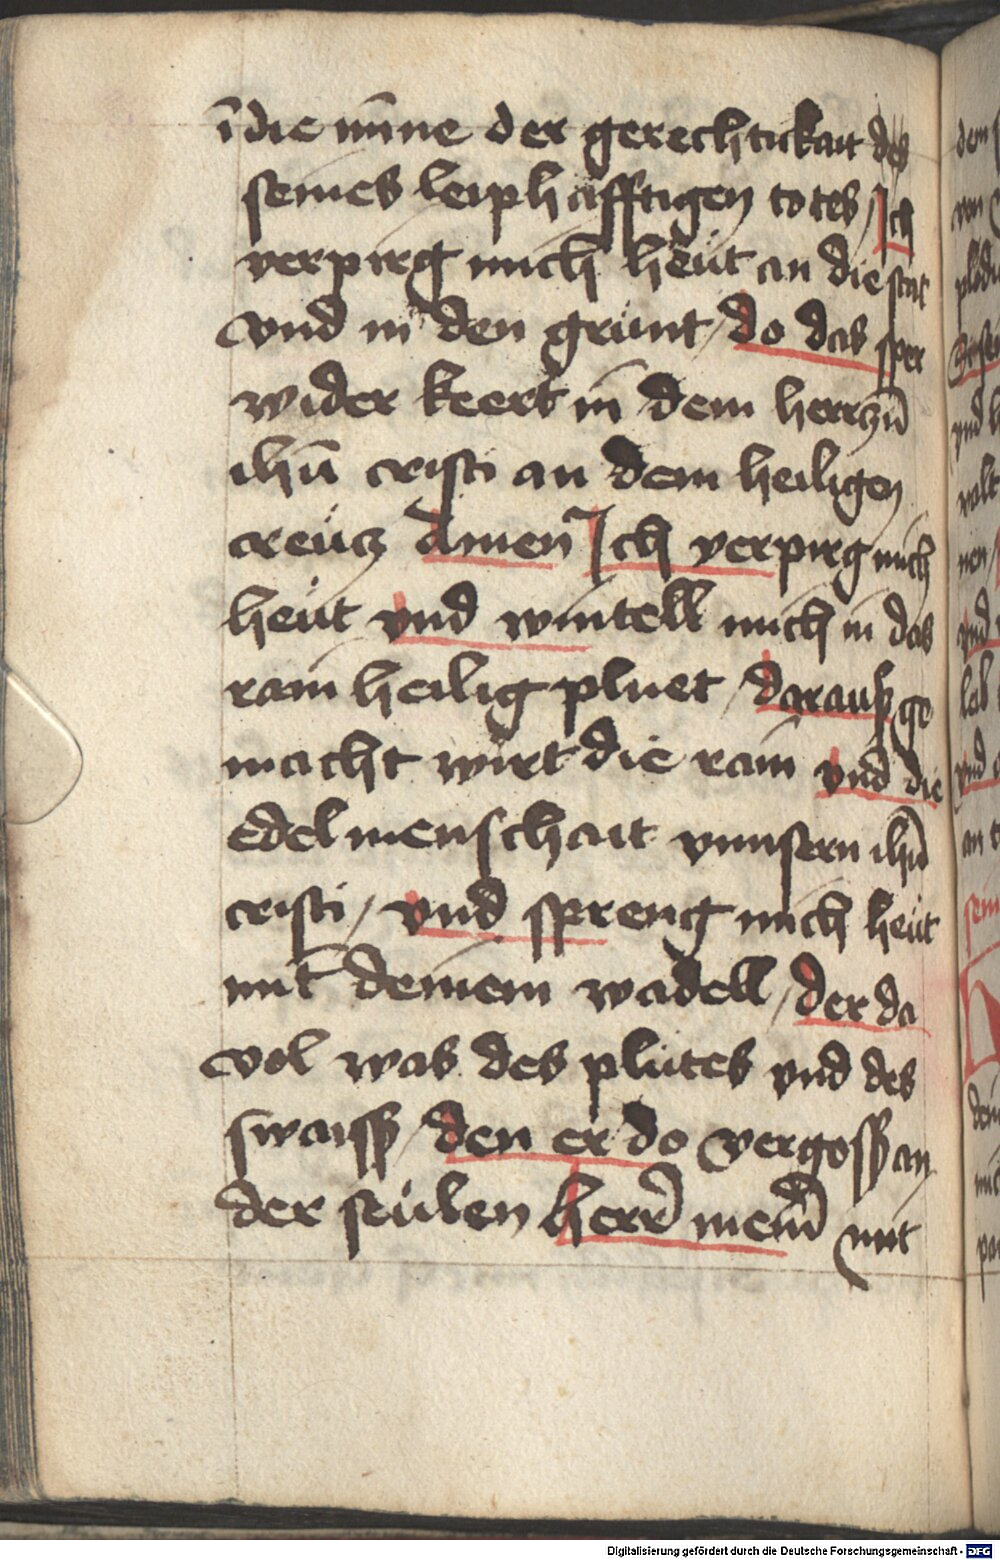 ī die mīne der gerechtickait des
seines leiphafftigen totes / Ich
verpirg mich heüt an die stat
vnd in den grunt / do das sper
wider keert in dem herrzn̄
ihū cristi an dem heiligen
creücz Amen Ich verpirg mich
heüt vnd wintell mich in das
rain heilig pluet / darauß ge
macht wirt die rain vnd die
edel menschait vnnsern ihū
cristi / vnd spreng mich heüt
mit deinem wadell / der da
vol was des plutes vnd des
swaiss / den er do vergoss an
der seülen herr̄ mein̄ mit
Digitalisierung gefördert durch die Deutsche Forschungsgemeinschaft - DFG